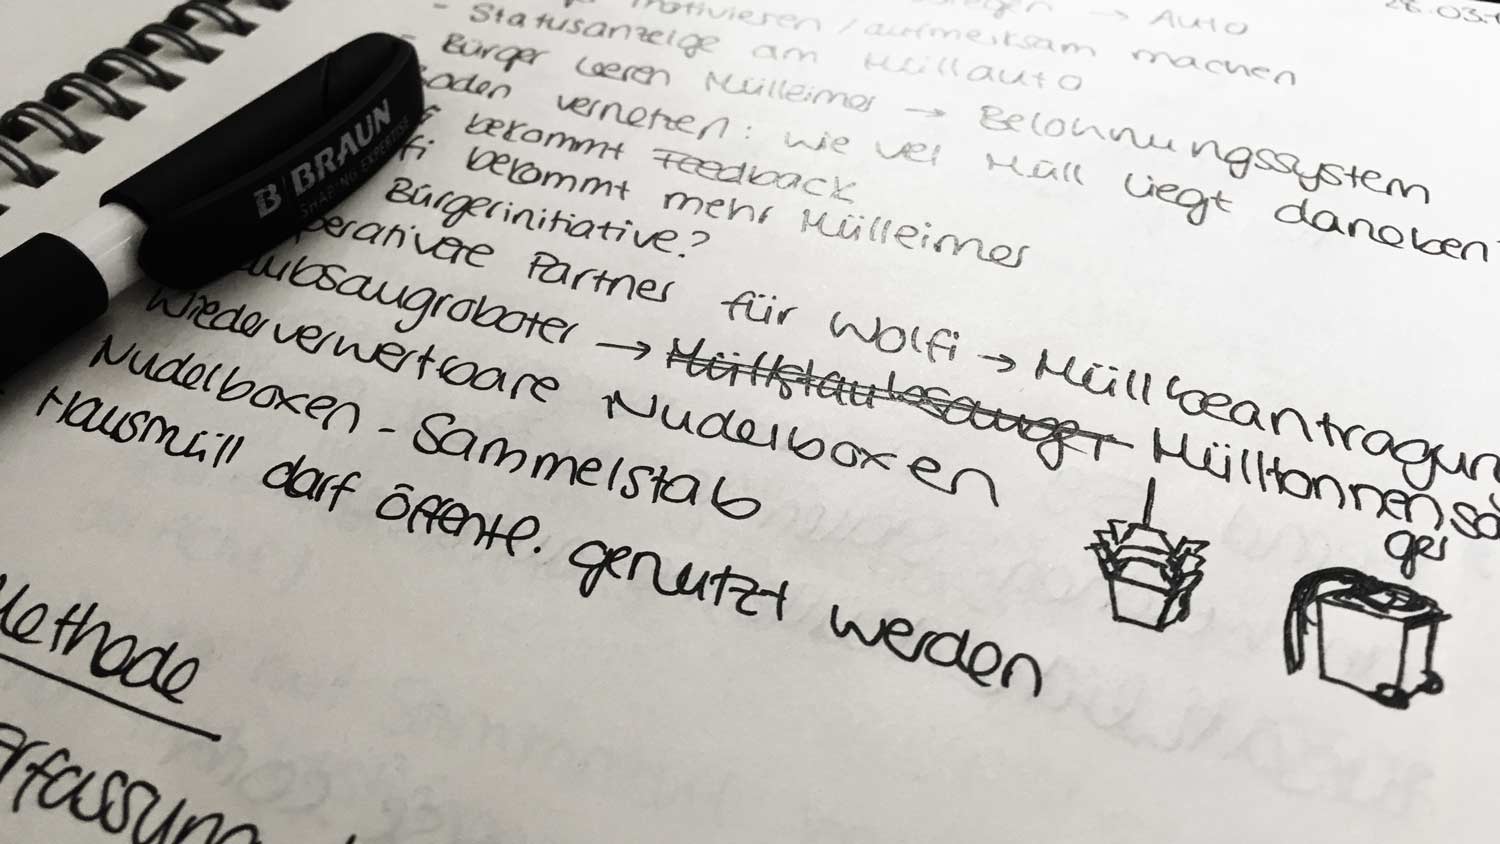 28.03.
→ Auto
motivieren / aufmerksam machen
- Statusanzeige am Müllauto
- Bürger leeren Mülleimer → Belohnungssystem
vernetzen: wie viel Müll liegt daneben
bekommt Feedback
bekommt mehr Mülleimer
Bürgerinitiative?
perativere Partner für Wolfi → Müllbeantragun
aubsaugroboter → Müllstaubsauger Mülltonnensä
ger
Wiederverwertbare Nudelboxen
Nudelboxen - Sammelstab
Hausmüll darf öffentl. genutzt werden
Methode
Erfassung
B|BRAUN
SHARING EXPERTISE